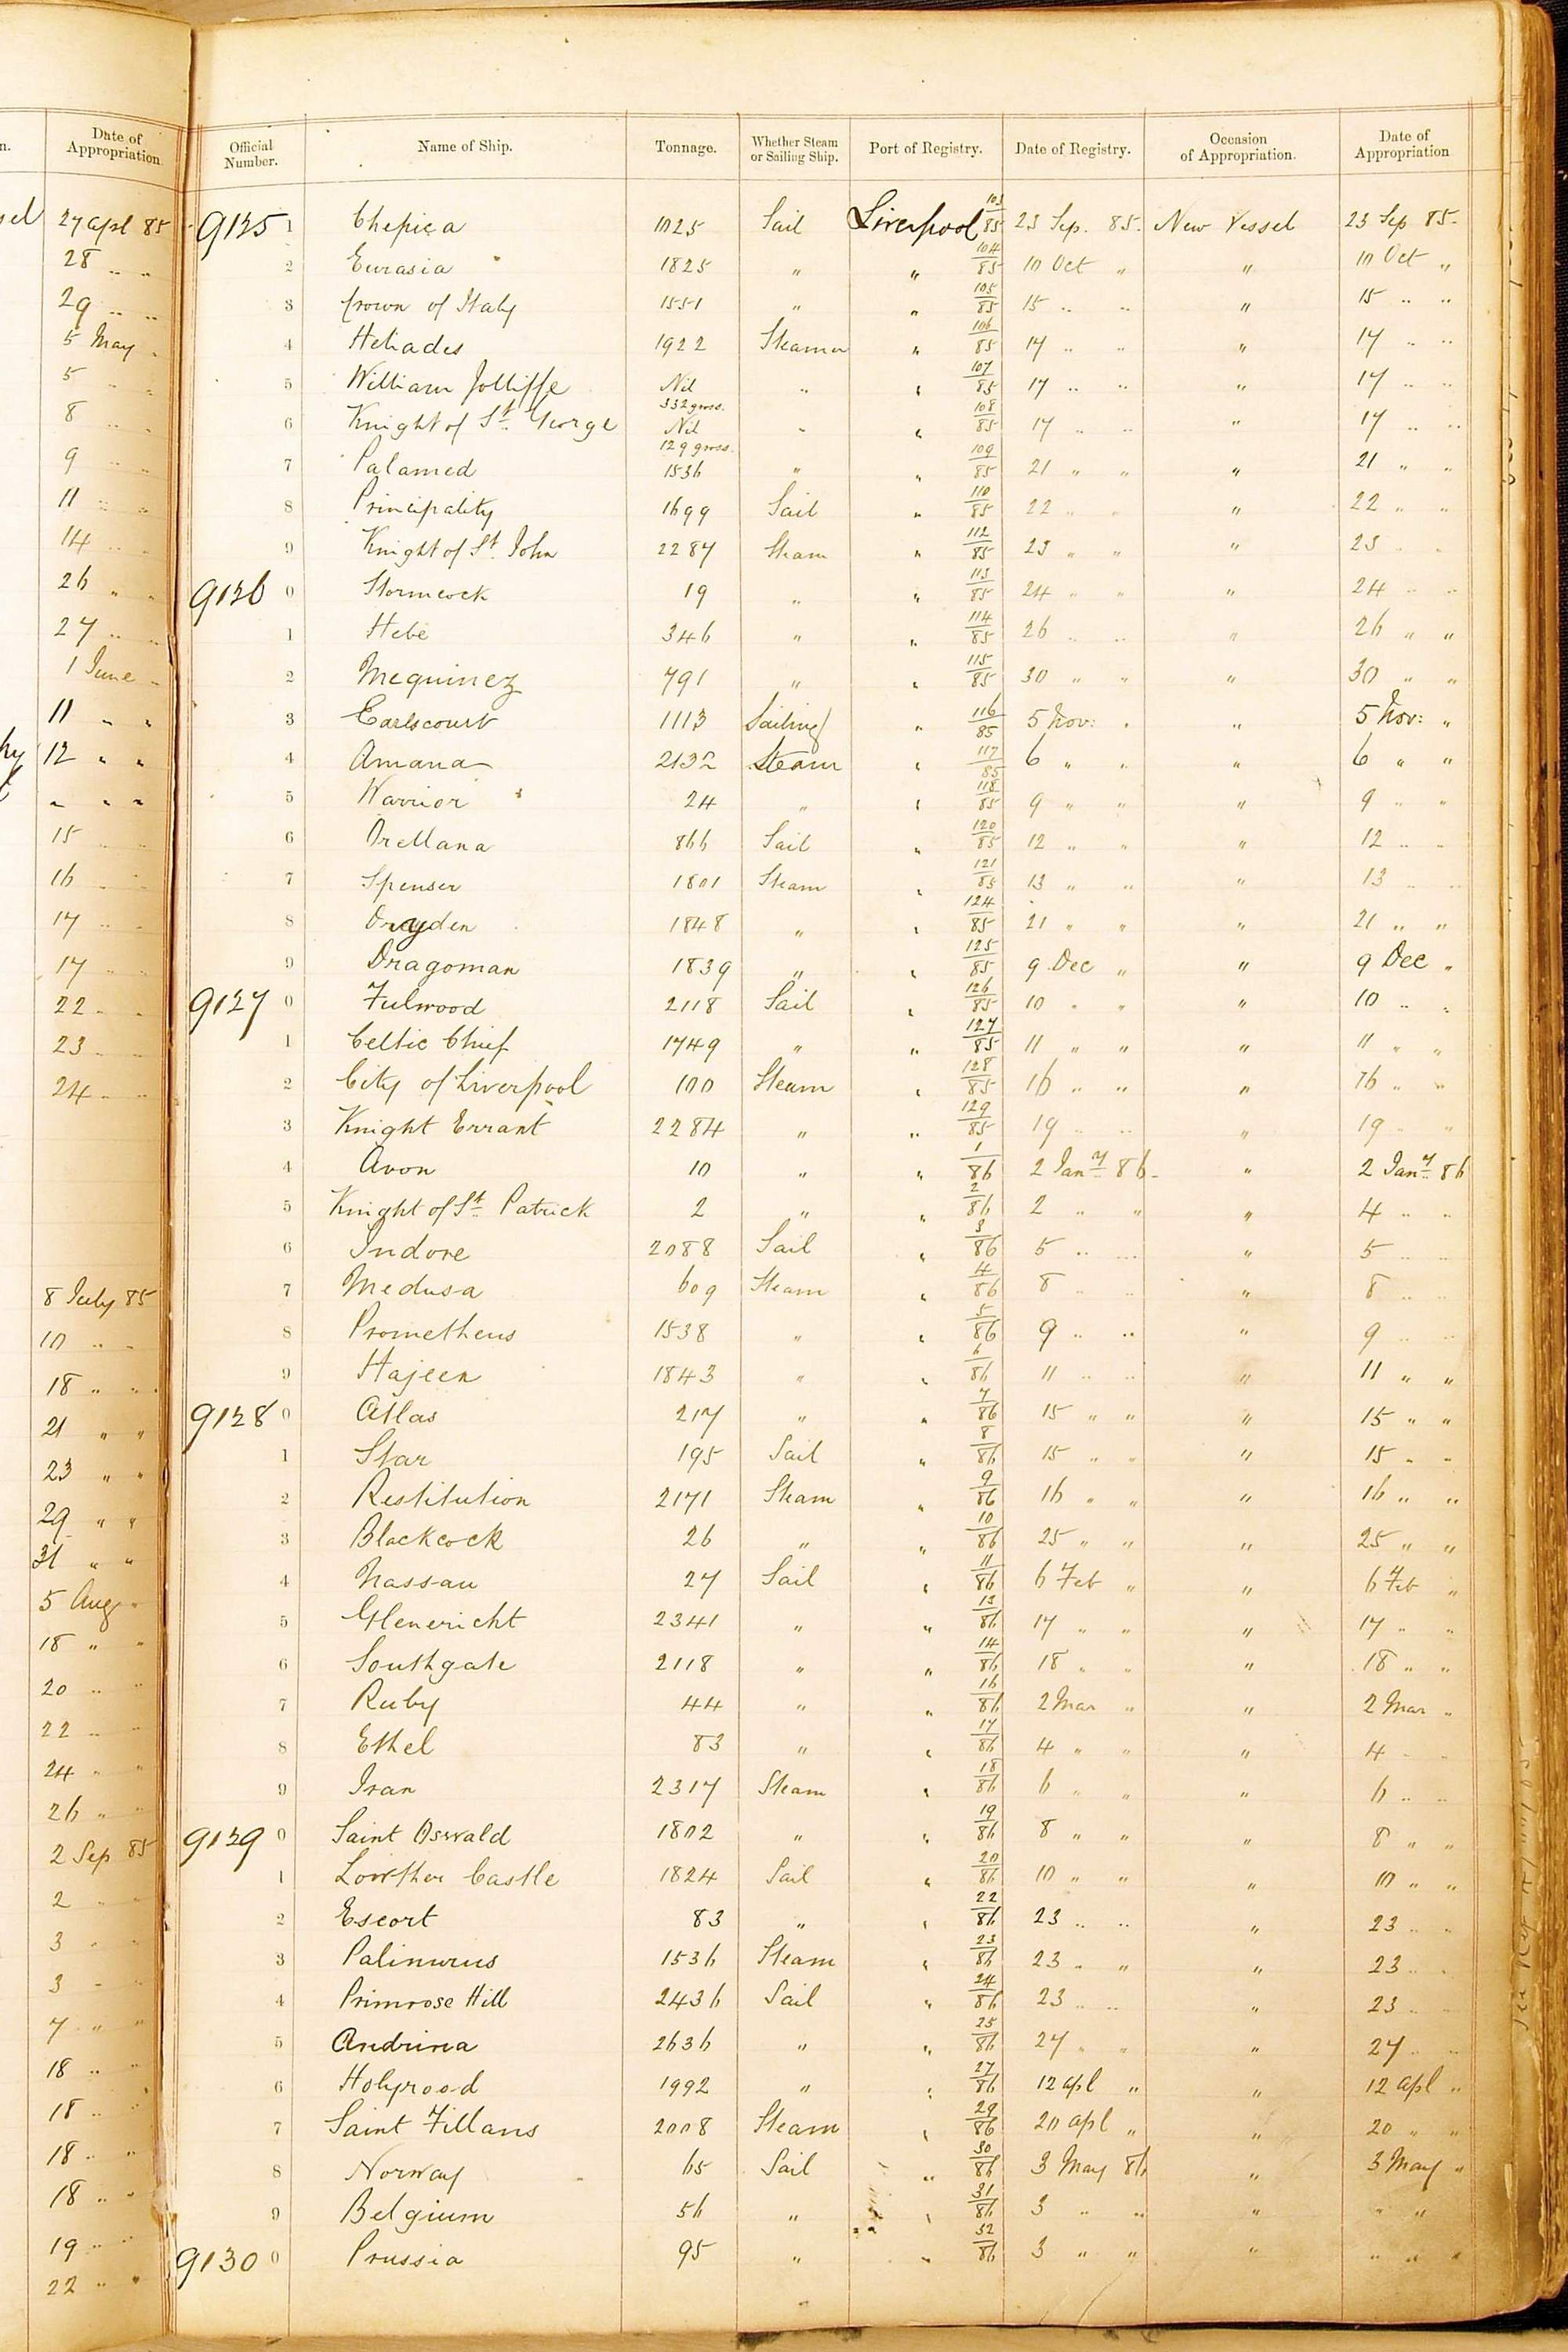 n.
Date of Appropriation.
sel 27 Apl 85
28 " "
29 " "
5 May "
5 " "
8 " "
9 " "
11 " "
14 " "
26 " "
27 " "
1 June "
11 " "
12 " "
" " "
15 " "
16 " "
17 " "
17 " "
22 " "
23 " "
24 " "
8 July 85
10 " "
18 " "
21 " "
23 " "
29 " "
31 " "
5 Aug "
18 " "
20 " "
22 " "
24 " "
26 " "
2 Sep 85
2 " "
3 " "
3 " "
7 " "
18 " "
18 " "
18 " "
18 " "
19 " "
22 " "
Official Number. Name of Ship. Tonnage. Whether Steam or Sailing Ship. Port of Registry. Date of Registry. Occasion of Appropriation. Date of Appropriation
9125 1 Chepica 1025 Sail Liverpool 103/85 23 Sep. 85. New Vessel 23 Sep 85.
2 Eurasia 1825 " " 104/85 10 Oct " " 10 Oct "
3 Crown of Italy 1551 " " 105/85 15 " " " 15 " "
4 Heliades 1922 Steamer " 106/85 17 " " " 17 " "
5 William Jolliffe Nil 332 gross. " " 107/85 17 " " " 17 " "
6 Knight of St. George Nil 129 gross. " " 108/85 17 " " " 17 " "
7 Palamed 1536 " " 109/85 21 " " " 21 " "
8 Principality 1699 Sail " 110/85 22 " " " 22 " "
9 Knight of St. John 2287 Steam " 112/85 23 " " " 23 " "
9126 0 Stormcock 19 " " 113/85 24 " " " 24 " "
1 Hebe 346 " " 114/85 26 " " " 26 " "
2 Mequinez 791 " " 115/85 30 " " " 30 " "
3 Earlscourt 1113 Sailing " 116/85 5 Nov: " " 5 Nov: "
4 Amana 2132 Steam " 117/85 6 " " " 6 " "
5 Warrior 24 " " 118/85 9 " " " 9 " "
6 Orellana 866 Sail " 120/85 12 " " " 12 " "
7 Spenser 1801 Steam " 121/85 13 " " " 13 " "
8 Drayden 1848 " " 124/85 21 " " " 21 " "
9 Dragoman 1839 " " 125/85 9 Dec " " 9 Dec "
9127 0 Fulwood 2118 Sail " 126/85 10 " " " 10 " "
1 Celtic Chief 1749 " " 127/85 11 " " " 11 " "
2 City of Liverpool 100 Steam " 128/85 16 " " " 16 " "
3 Knight Errant 2284 " " 129/85 19 " " " 19 " "
4 Avon 10 " " 1/86 2 Jany 86. " 2 Jany 86
5 Knight of St. Patrick 2 " " 2/86 2 " " " 4 " "
6 Indore 2088 Sail " 3/86 5 " " " 5 " "
7 Medusa 609 Steam " 4/86 8 " " " 8 " "
8 Prometheus 1538 " " 5/86 9 " " " 9 " "
9 Hajeen 1843 " " 6/86 11 " " " 11 " "
9128 0 Atlas 217 " " 7/86 15 " " " 15 " "
1 Star 195 Sail " 8/86 15 " " " 15 " "
2 Restitution 2171 Steam " 9/86 16 " " " 16 " "
3 Blackcock 26 " " 10/86 25 " " " 25 " "
4 Nassau 27 Sail " 11/86 6 Feb " " 6 Feb "
5 Glenericht 2341 " " 12/86 17 " " " 17 " "
6 Southgate 2118 " " 14/86 18 " " " 18 " "
7 Ruby 44 " " 16/86 2 Mar " " 2 Mar "
8 Ethel 83 " " 17/86 4 " " " 4 " "
9 Iran 2317 Steam " 18/86 6 " " " 6 " "
9129 0 Saint Oswald 1802 " " 19/86 8 " " " 8 " "
1 Lowther Castle 1824 Sail " 20/86 10 " " " 10 " "
2 Escort 83 " " 22/86 23 " " " 23 " "
3 Palinurus 1536 Steam " 23/86 23 " " " 23 " "
4 Primrose Hill 2436 Sail " 24/86 23 " " " 23 " "
5 Andrina 2636 " " 25/86 27 " " " 27 " "
6 Holyrood 1992 " " 27/86 12 Apl " " 12 Apl "
7 Saint Fillans 2008 Steam " 29/86 20 Apl " " 20 " "
8 Norway 65 Sail " 30/86 3 May 86 " 3 May "
9 Belgium 56 " " 31/86 3 " " " " "
9130 0 Prussia 95 " " 32/86 3 " " " " " "